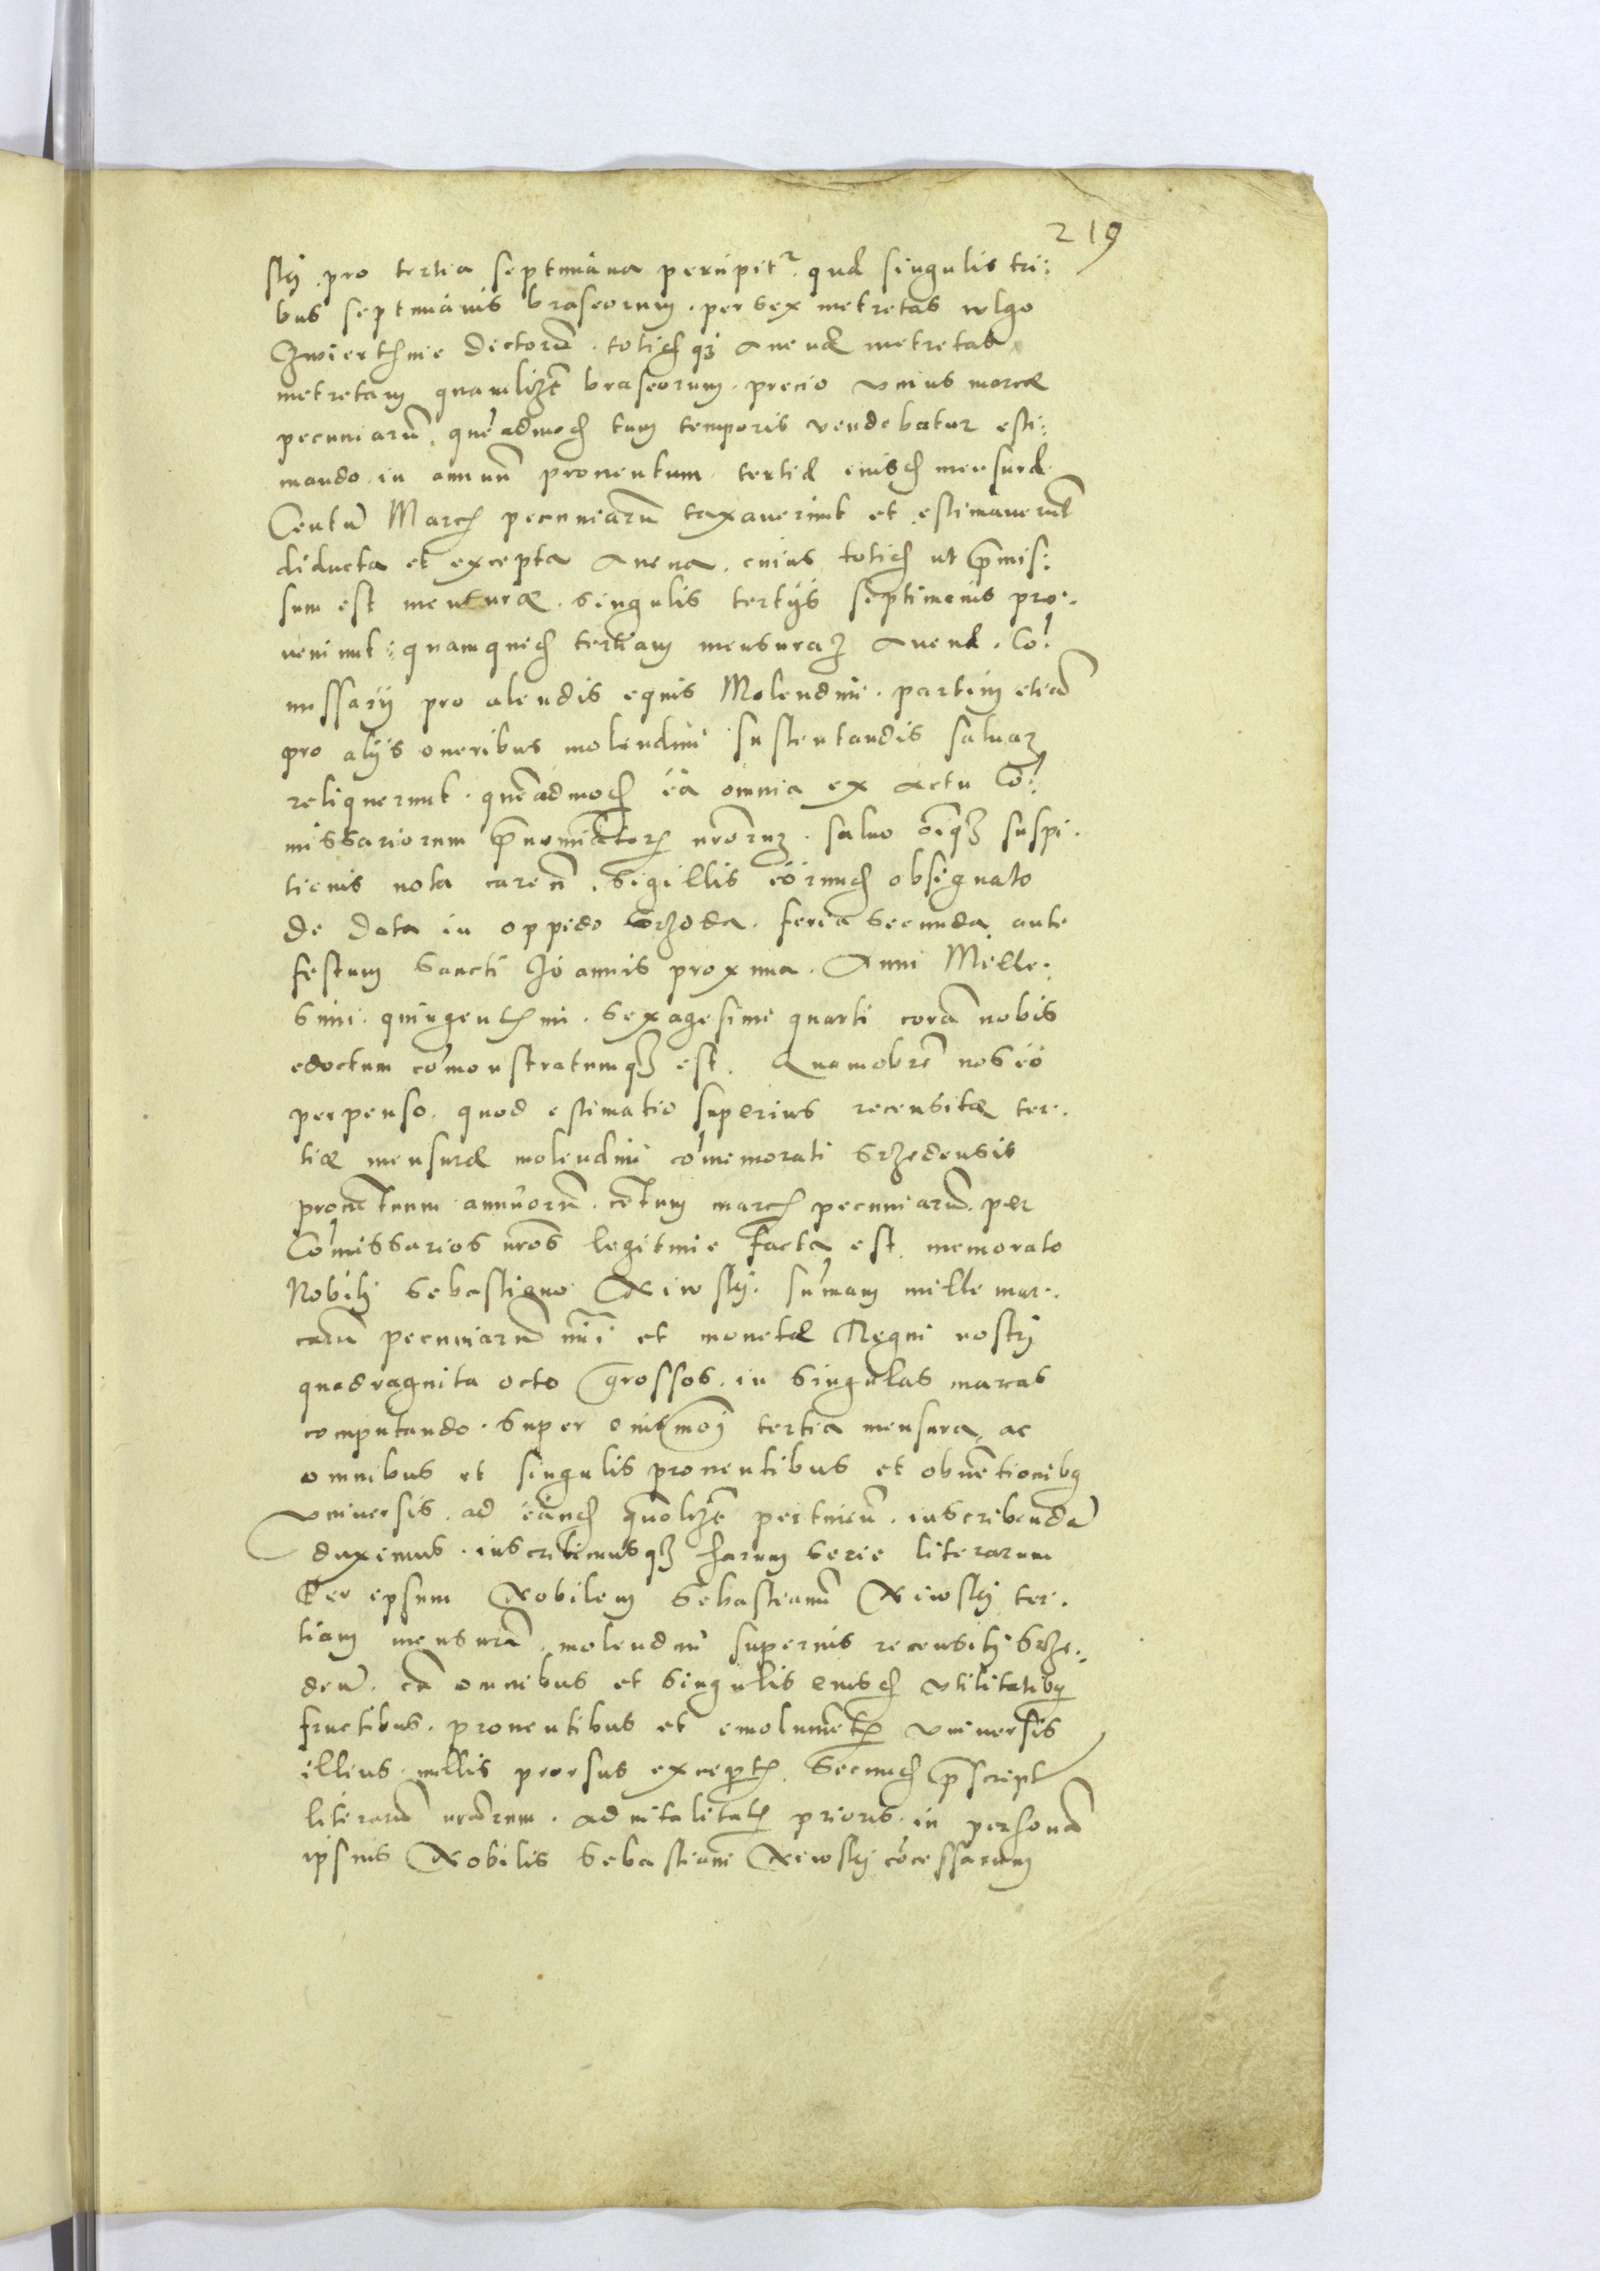 219
skj pro tertia septimana percipitr quæ singulis tri:
bus septimanis braseorum per sex metretas wlgo
Czwierthnie dictorũ totidẽ qʒ Auenæ metretas
metretam quamlizt braseorum precio vnius marcæ
pecuniarũ quẽadmodũ tum temporis vendebatur esti:
mando in annuũ prouentum tertiæ eiusdẽ mensuræ
Centũ Marcarũ pecuniarũ taxauerunt et estimauerũt
diducta et excepta Auena cuius totidẽ ut p̃mis:
sum est mensuræ singulis tertijs septimanis pro:
ueniunt: quamquidẽ tertiam mensuraʒ Auenæ Cõ:
missarij pro alendis equis Molendini partim etiã
pro alijs oneribus molendini sustentandis saluaʒ
reliquerunt quẽadmodũ ea omnia ex actu Cõ:
missariorum p̃nominatorũ nr̃oruʒ saluo õiqʒ suspi:
tionis nota careñ Sigillis eorundẽ obsignato
de data in oppido Srzoda feria secunda ante
festum Sancti Joannis proxima Anni Mille:
simi quingentesimi sexagesimi quarti corã nobis
edoctum cõmonstratumqʒ est. Quamobrẽ nos eo
perpenso quod estimatio superius recensitæ ter:
tiæ mensuræ molendini cõmemorati Srzedensis
prouẽtuum annuorũ cẽtum marcarũ pecuniarũ per
Cõmissarios nr̃os legitime facta est memorato
Nobili Sebastiano Xiwskj sũmam mille mar:
carũ pecuniarũ nũi et monetæ Regni nostrj
quadraginta octo grossos in singulas marcas
computando super eiusmodi tertia mensura ac
omnibus et singulis prouentibus et obuẽtionibꝫ
vniuersis ad eandẽ quolizt pertineñ inscribendã
duximus inscribimusqʒ harum serie literarum
Per ipsum Nobilem Sebastianũ Xiwskj ter:
tiam mensurã molendini superius recensiti Srze:
deñ cũ omnibus et singulis eiusdẽ vtilitatibꝫ
fructibus prouentibus et emolumẽtis vniuersis
illius nullis prorsus exceptis secundũ p̃script
literarũ nr̃arum ad uitalitatẽ prioris in personã
ipsius Nobilis Sebastiani Xiwskj cõcessarum